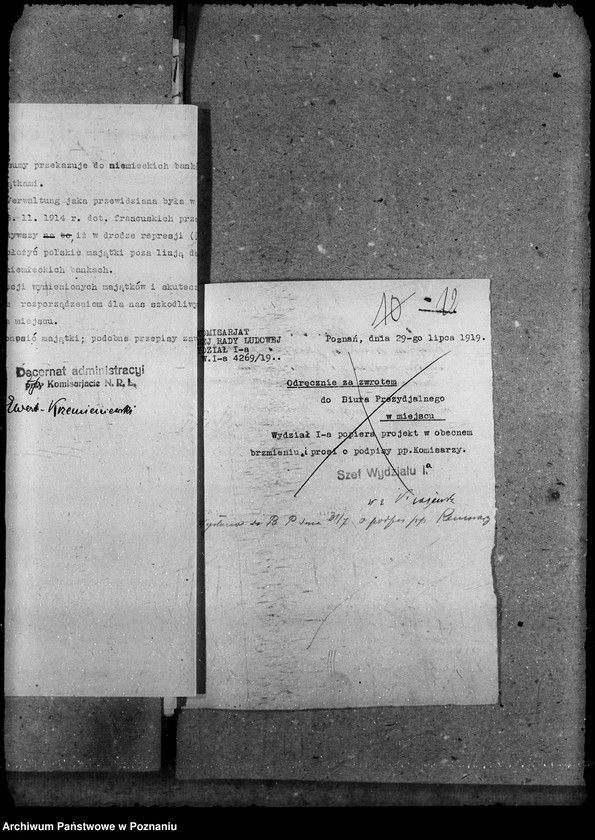 sumy przekazuje do niemieckich bank
ątkami.
Verwaltung jaka przewidziana była w
11. 1914 r. dot. francuskich prz
na to, iż w drodze represji (
ołożyć polskie majątki poza linją d
niemieckich bankach.
cji wymienionych majątków i skutecz
rozporządzeniem dla nas szkodliwy
miejscu.
majątki; podobne przepisy za
Decernat administracyi
przy Komisarjacie N. R. L.
10 12
KOMISARJAT
EJ RADY LUDOWEJ
DZIAŁ I-a
W.I-a 4269/19..
Poznań, dnia 29-go lipca 1919.
Odręcznie za zwrotem
do Biura Prezydjalnego
w miejscu
Wydział I-a popiera projekt w obecnem
brzmieniu i prosi o podpisy pp.Komisarzy.
Szef Wydziału I.a
w z
do B P dnia 31/7 o podpis pp.
Archiwum Państwowe w Poznaniu